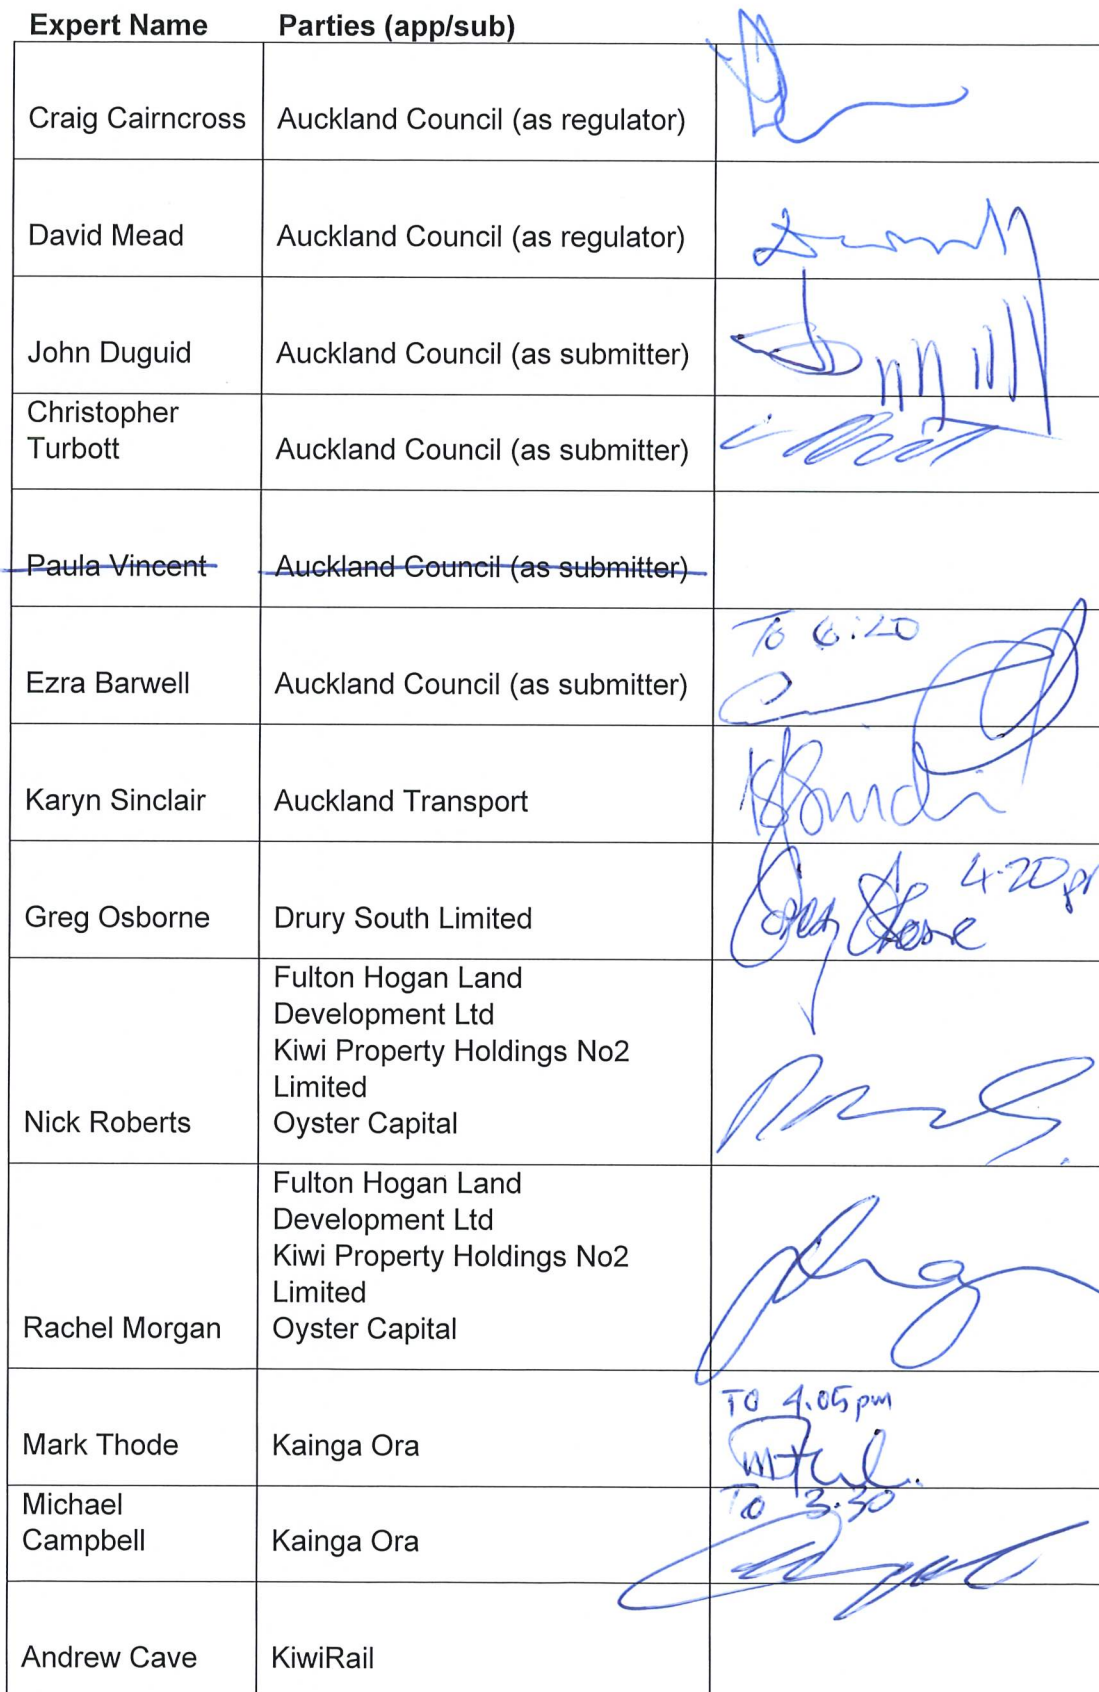 Expert Name Parties (app/sub)
Craig Cairncross Auckland Council (as regulator)
David Mead Auckland Council (as regulator)
John Duguid Auckland Council (as submitter)
Christopher
Turbott Auckland Council (as submitter)
Paula Vincent Auckland Council (as submitter)
To 6:20
Ezra Barwell Auckland Council (as submitter)
Karyn Sinclair Auckland Transport
To 4.20pm
Greg Osborne Drury South Limited
Fulton Hogan Land
Development Ltd
Kiwi Property Holdings No2
Limited
Nick Roberts Oyster Capital
Fulton Hogan Land
Development Ltd
Kiwi Property Holdings No2
Limited
Rachel Morgan Oyster Capital
TO 4.05pm
Mark Thode Kainga Ora
To 3.30
Michael
Campbell Kainga Ora
Andrew Cave KiwiRail